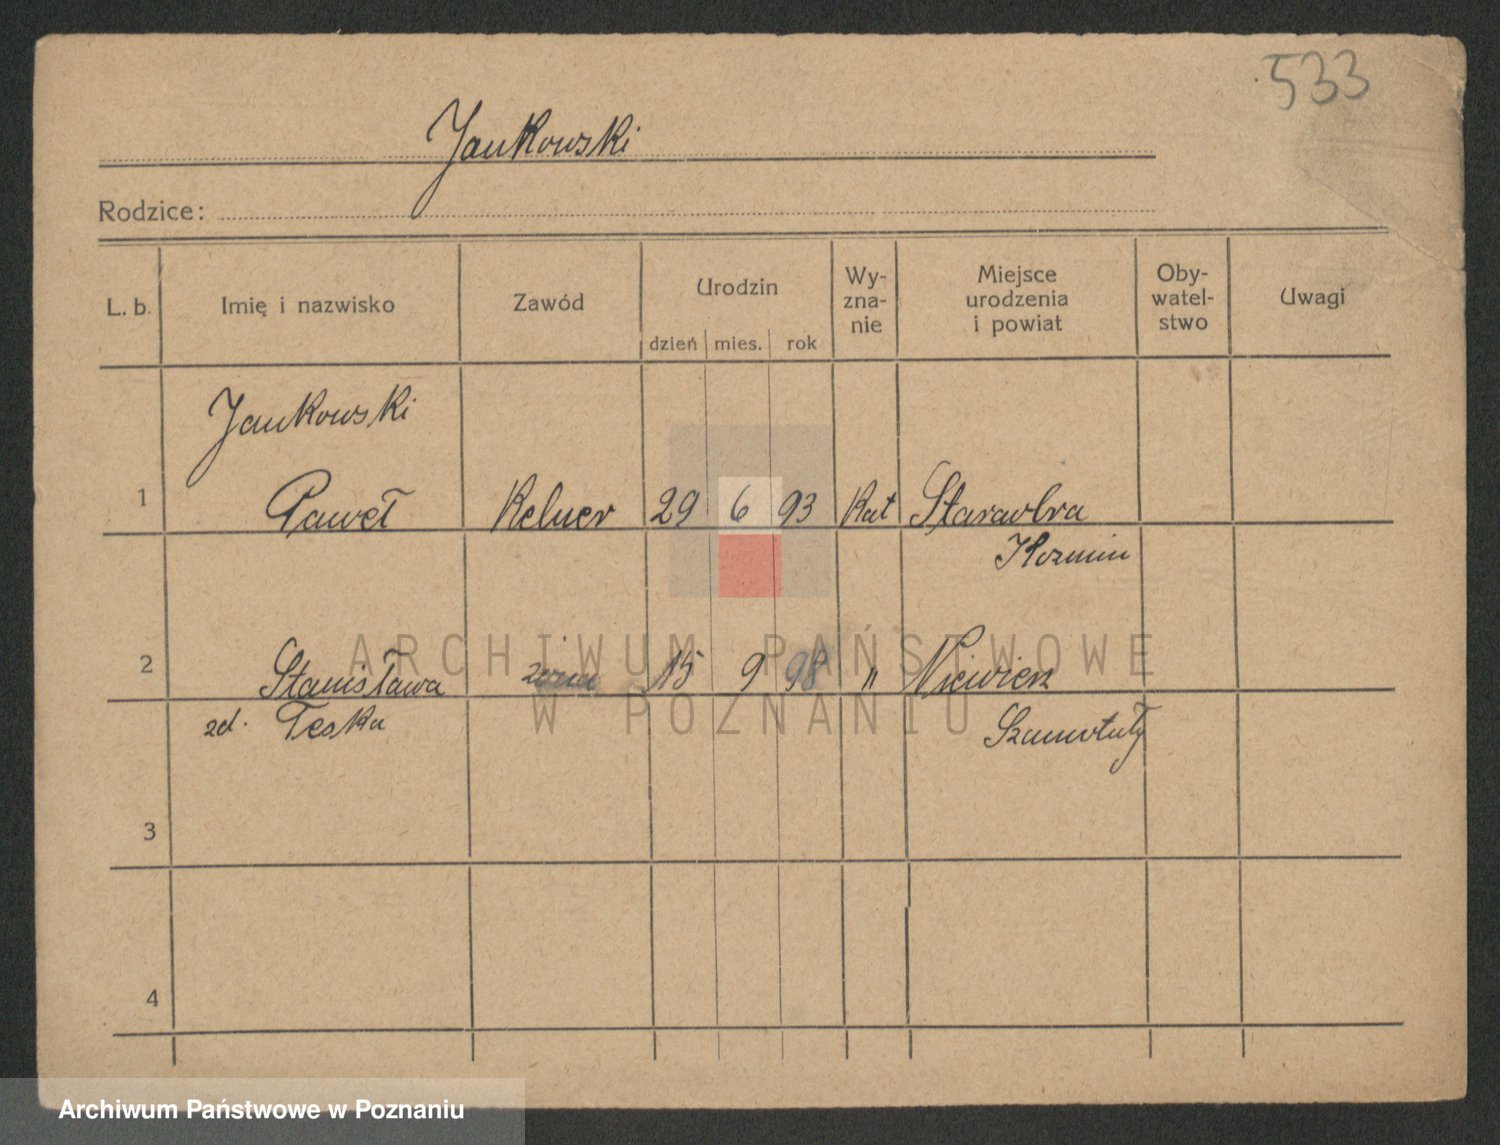 533
Jankowski
Rodzice:
L. b. Imię i nazwisko Zawód Urodzin dzień mies. rok Wy-zna-nie Miejsce urodzenia i powiat Oby-watel-stwo Uwagi
Jankowski
1 Paweł Kelner 29 6 93 Kat Staraobra
Kozmin
2 Stanisława żona 15 9 98 " Niewierz
zd. Teska Szamotuły
3
4
ARCHIWUM PAŃSTWOWE
W POZNANIU
Archiwum Państwowe w Poznaniu